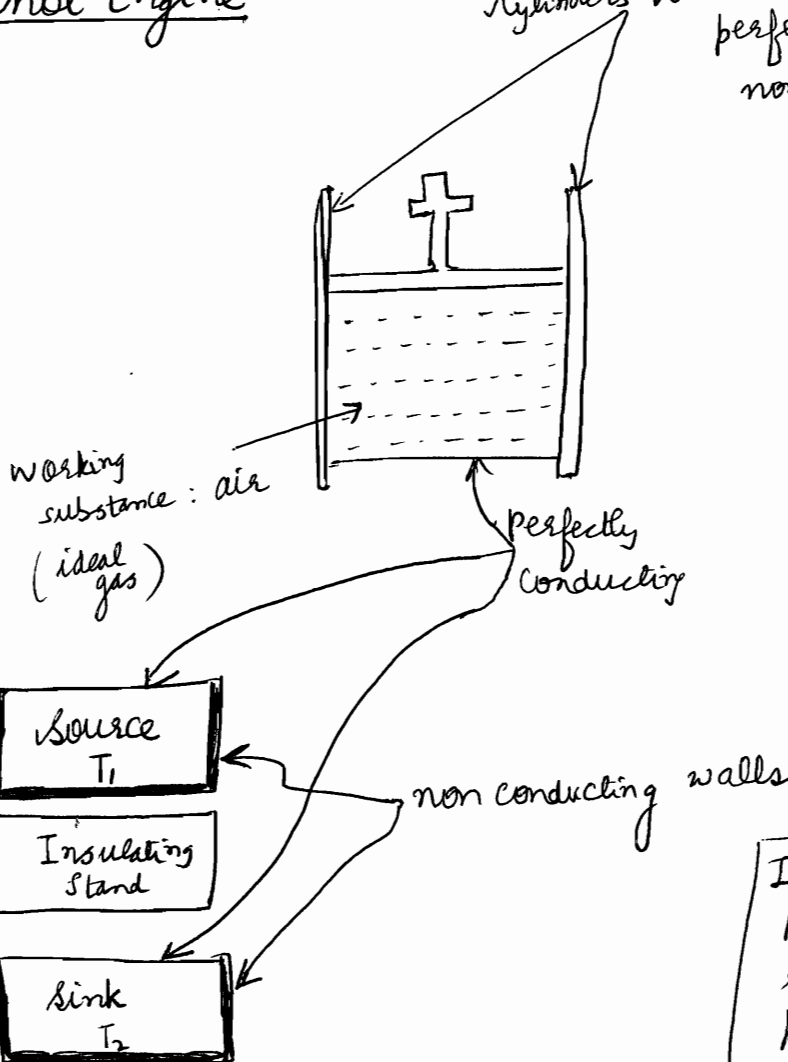 Engine
Cylinders
working
substance : air
(ideal
gas)
Perfectly
Conducting
Source
T₁
non conducting walls
Insulating
Stand
Sink
T₂